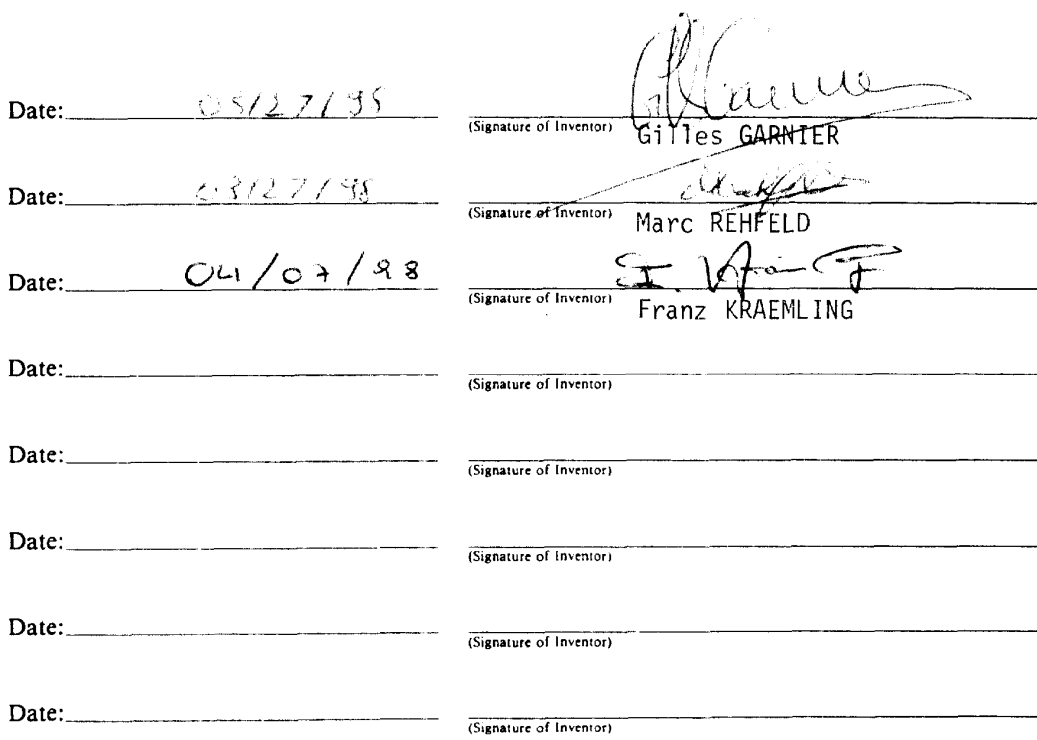 Date: 03/27/98
(Signature of Inventor) Gilles GARNIER
Date: 03/27/98
(Signature of Inventor) Marc REHFELD
Date: 04/07/98
(Signature of Inventor) Franz KRAEMLING
Date:
(Signature of Inventor)
Date:
(Signature of Inventor)
Date:
(Signature of Inventor)
Date:
(Signature of Inventor)
Date:
(Signature of Inventor)